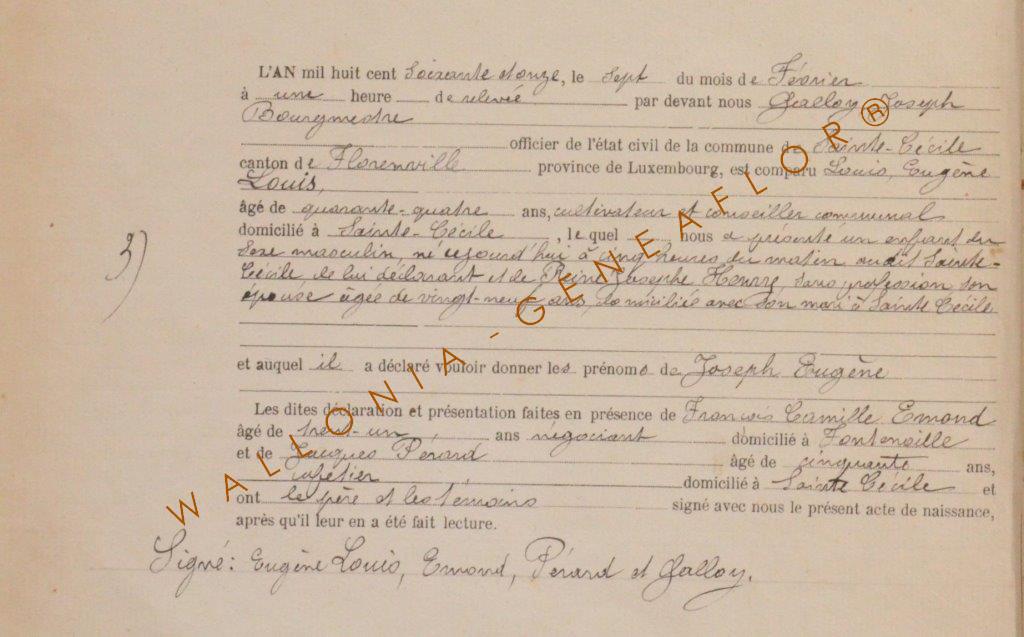 L'AN mil huit cent soixante et onze, le sept du mois de Février
à une heure de relevée par devant nous Galloy Joseph
Bourgmestre
officier de l'état civil de la commune de Sainte-Cécile
canton de Florenville province de Luxembourg, est comparu Louis, Eugène
Louis,
âgé de quarante-quatre ans, cultivateur et conseiller communal
domicilié à Sainte-Cécile, le quel nous a présenté un enfant du
Sexe masculin, né cejourd'hui à cinq heures du matin audit Sainte-
Cécile de lui déclarant et de Reine Josephe Henry, sans profession son
épouse âgée de vingt-neuf ans, domiciliée avec son mari à Sainte Cécile
3)
et auquel il a déclaré vouloir donner les prénoms de Joseph Eugène
Les dites déclaration et présentation faites en présence de François Camille Emond
âgé de trent-un ans négociant domicilié à Fontenoille
et de Jacques Pérard âgé de cinquante ans,
cafetier domicilié à Sainte Cécile et
ont le père et les témoins signé avec nous le présent acte de naissance,
après qu'il leur en a été fait lecture.
Signé: Eugène Louis, Emond, Pérard et Galloy.
WALLONIA-GENEAFLOR®